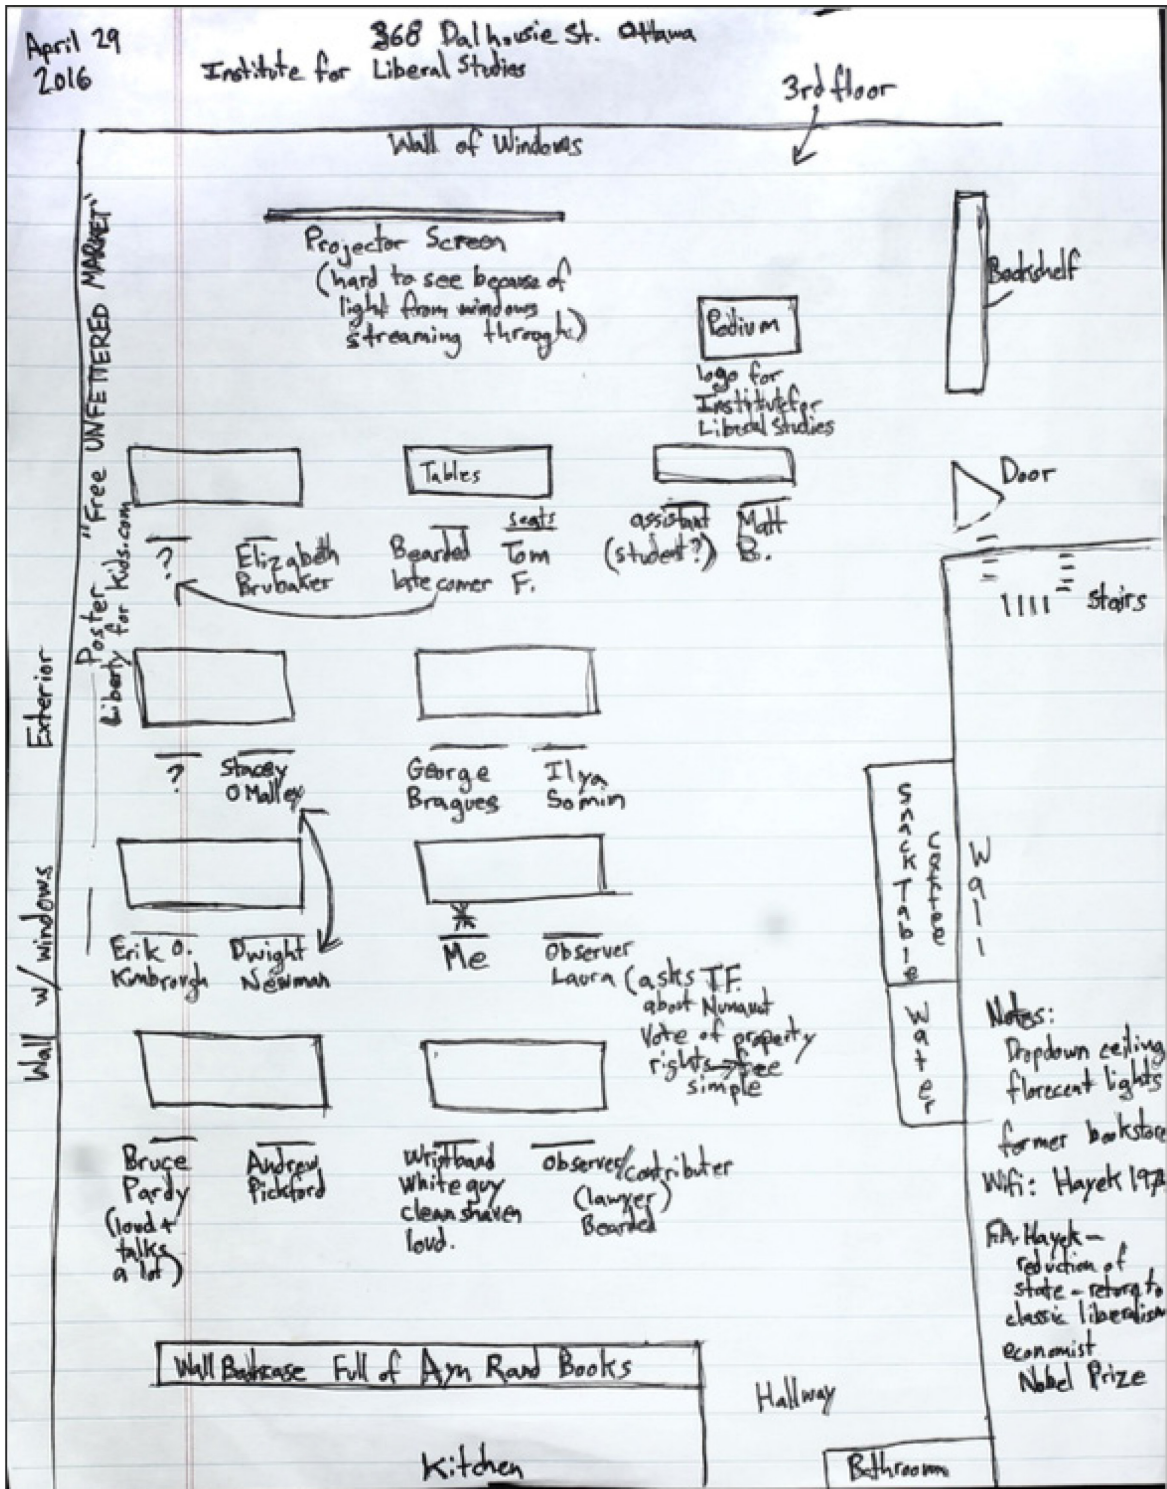 April 29
2016
368 Dalhousie St. Ottawa
Institute for Liberal Studies
3rd floor
Wall of Windows
Projector Screen
(hard to see because of
light from windows
streaming through)
Podium
logo for
Institute for
Liberal Studies
Bookshelf
Poster "Free UNFETTERED MARKET"
Liberty for Kids.com
Tables
Door
Stairs
?
Elizabeth
Brubaker
Bearded
late comer
seats
Tom
F.
assistant
(student?)
Matt
B.
Exterior
Wall w/ windows
?
Stacey
O Malley
George
Bragues
Ilya
Somin
Snack Table
Coffee
Water
Wall
Erik O.
Kimbrough
Dwight
Newman
Me
Observer
Laura (asks T.F.
about Nunavut
Vote of property
rights → fee
simple
Bruce
Pardy
(loud +
talks
a lot)
Andrew
Pickford
Wristband
White guy
clean shaven
loud.
Observer/contributer
(lawyer)
Bearded
Notes:
Dropdown ceiling
florecent lights
former bookstore
Wifi: Hayek
F.A. Hayek –
reduction of
state – return to
classic liberalism
economist
Nobel Prize
Wall Bookcase Full of Ayn Rand Books
Hallway
Kitchen
Bathroom